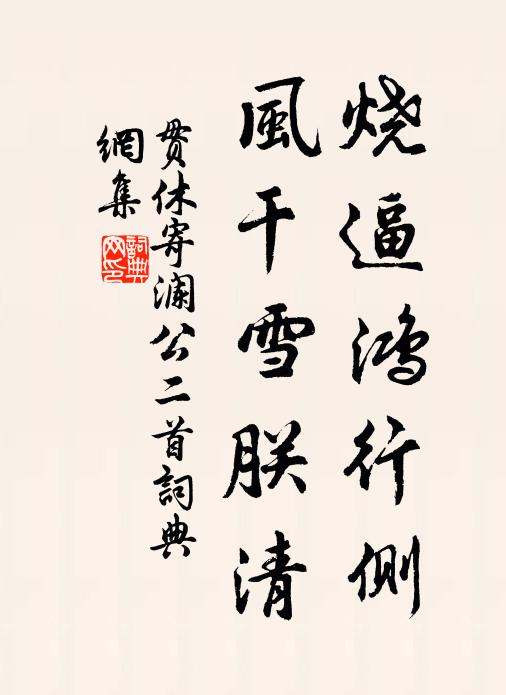 烧逼鸿行侧
風干雪朕清
贯休寄澜公二首詞典
網集
詞典
网印